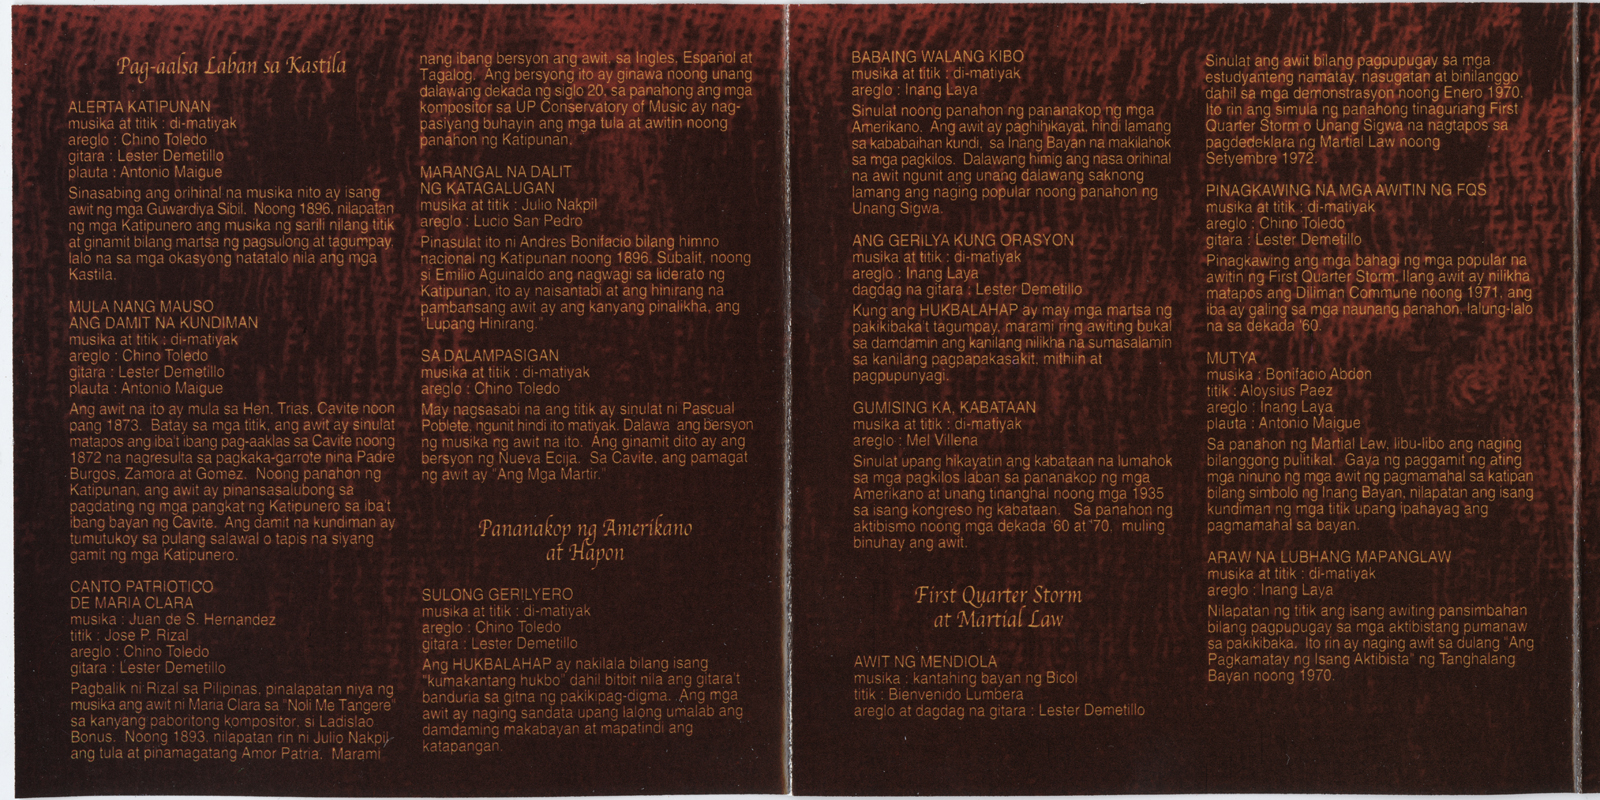 Pag-aalsa Laban sa Kastila
ALERTA KATIPUNAN
musika at titik : di-matiyak
areglo : Chino Toledo
gitara : Lester Demetillo
plauta : Antonio Maigue
Sinasabing ang orihinal na musika nito ay isang
awit ng mga Guwardiya Sibil. Noong 1896, nilapatan
ng mga Katipunero ang musika ng sarili nilang titik
at ginamit bilang martsa ng pagsulong at tagumpay,
lalo na sa mga okasyong natatalo nila ang mga
Kastila.
MULA NANG MAUSO
ANG DAMIT NA KUNDIMAN
musika at titik : di-matiyak
areglo : Chino Toledo
gitara : Lester Demetillo
plauta : Antonio Maigue
Ang awit na ito ay mula sa Hen. Trias, Cavite noon
pang 1873. Batay sa mga titik, ang awit ay sinulat
matapos ang iba't ibang pag-aaklas sa Cavite noong
1872 na nagresulta sa pagkaka-garrote nina Padre
Burgos, Zamora at Gomez. Noong panahon ng
Katipunan, ang awit ay pinansasalubong sa
pagdating ng mga pangkat ng Katipunero sa iba't
ibang bayan ng Cavite. Ang damit na kundiman ay
tumutukoy sa pulang salawal o tapis na siyang
gamit ng mga Katipunero.
CANTO PATRIOTICO
DE MARIA CLARA
musika : Juan de S. Hernandez
titik : Jose P. Rizal
areglo : Chino Toledo
gitara : Lester Demetillo
Pagbalik ni Rizal sa Pilipinas, pinalapatan niya ng
musika ang awit ni Maria Clara sa "Noli Me Tangere"
sa kanyang paboritong kompositor, si Ladislao
Bonus. Noong 1893, nilapatan rin ni Julio Nakpil
ang tula at pinamagatang Amor Patria. Marami
nang ibang bersyon ang awit, sa Ingles, Español at
Tagalog. Ang bersyong ito ay ginawa noong unang
dalawang dekada ng siglo 20, sa panahong ang mga
kompositor sa UP Conservatory of Music ay nag-
pasiyang buhayin ang mga tula at awitin noong
panahon ng Katipunan.
MARANGAL NA DALIT
NG KATAGALUGAN
musika at titik : Julio Nakpil
areglo : Lucio San Pedro
Pinasulat ito ni Andres Bonifacio bilang himno
nacional ng Katipunan noong 1896. Subalit, noong
si Emilio Aguinaldo ang nagwagi sa liderato ng
Katipunan, ito ay naisantabi at ang hinirang na
pambansang awit ay ang kanyang pinalikha, ang
"Lupang Hinirang."
SA DALAMPASIGAN
musika at titik : di-matiyak
areglo : Chino Toledo
May nagsasabi na ang titik ay sinulat ni Pascual
Poblete, ngunit hindi ito matiyak. Dalawa ang bersyon
ng musika ng awit na ito. Ang ginamit dito ay ang
bersyon ng Nueva Ecija. Sa Cavite, ang pamagat
ng awit ay "Ang Mga Martir."
Pananakop ng Amerikano
at Hapon
SULONG GERILYERO
musika at titik : di-matiyak
areglo : Chino Toledo
gitara : Lester Demetillo
Ang HUKBALAHAP ay nakilala bilang isang
"kumakantang hukbo" dahil bitbit nila ang gitara't
banduria sa gitna ng pakikipag-digma. Ang mga
awit ay naging sandata upang lalong umalab ang
damdaming makabayan at mapatindi ang
katapangan.
BABAING WALANG KIBO
musika at titik : di-matiyak
areglo : Inang Laya
Sinulat noong panahon ng pananakop ng mga
Amerikano. Ang awit ay paghihikayat, hindi lamang
sa kababaihan kundi, sa Inang Bayan na makilahok
sa mga pagkilos. Dalawang himig ang nasa orihinal
na awit ngunit ang unang dalawang saknong
lamang ang naging popular noong panahon ng
Unang Sigwa.
ANG GERILYA KUNG ORASYON
musika at titik : di-matiyak
areglo : Inang Laya
dagdag na gitara : Lester Demetillo
Kung ang HUKBALAHAP ay may mga martsa ng
pakikibaka't tagumpay, marami ring awiting bukal
sa damdamin ang kanilang nilikha na sumasalamin
sa kanilang pagpapakasakit, mithiin at
pagpupunyagi.
GUMISING KA, KABATAAN
musika at titik : di-matiyak
areglo : Mel Villena
Sinulat upang hikayatin ang kabataan na lumahok
sa mga pagkilos laban sa pananakop ng mga
Amerikano at unang tinanghal noong mga 1935
sa isang kongreso ng kabataan. Sa panahon ng
aktibismo noong mga dekada '60 at '70, muling
binuhay ang awit.
First Quarter Storm
at Martial Law
AWIT NG MENDIOLA
musika : kantahing bayan ng Bicol
titik : Bienvenido Lumbera
areglo at dagdag na gitara : Lester Demetillo
Sinulat ang awit bilang pagpupugay sa mga
estudyanteng namatay, nasugatan at binilanggo
dahil sa mga demonstrasyon noong Enero 1970.
Ito rin ang simula ng panahong tinaguriang First
Quarter Storm o Unang Sigwa na nagtapos sa
pagdedeklara ng Martial Law noong
Setyembre 1972.
PINAGKAWING NA MGA AWITIN NG FQS
musika at titik : di-matiyak
areglo : Chino Toledo
gitara : Lester Demetillo
Pinagkawing ang mga bahagi ng mga popular na
awitin ng First Quarter Storm. Ilang awit ay nilikha
matapos ang Diliman Commune noong 1971, ang
iba ay galing sa mga naunang panahon, lalung-lalo
na sa dekada '60.
MUTYA
musika : Bonifacio Abdon
titik : Aloysius Paez
areglo : Inang Laya
plauta : Antonio Maigue
Sa panahon ng Martial Law, libu-libo ang naging
bilanggong pulitikal. Gaya ng paggamit ng ating
mga ninuno ng mga awit ng pagmamahal sa katipan
bilang simbolo ng Inang Bayan, nilapatan ang isang
kundiman ng mga titik upang ipahayag ang
pagmamahal sa bayan.
ARAW NA LUBHANG MAPANGLAW
musika at titik : di-matiyak
areglo : Inang Laya
Nilapatan ng titik ang isang awiting pansimbahan
bilang pagpupugay sa mga aktibistang pumanaw
sa pakikibaka. Ito rin ay naging awit sa dulang "Ang
Pagkamatay ng Isang Aktibista" ng Tanghalang
Bayan noong 1970.